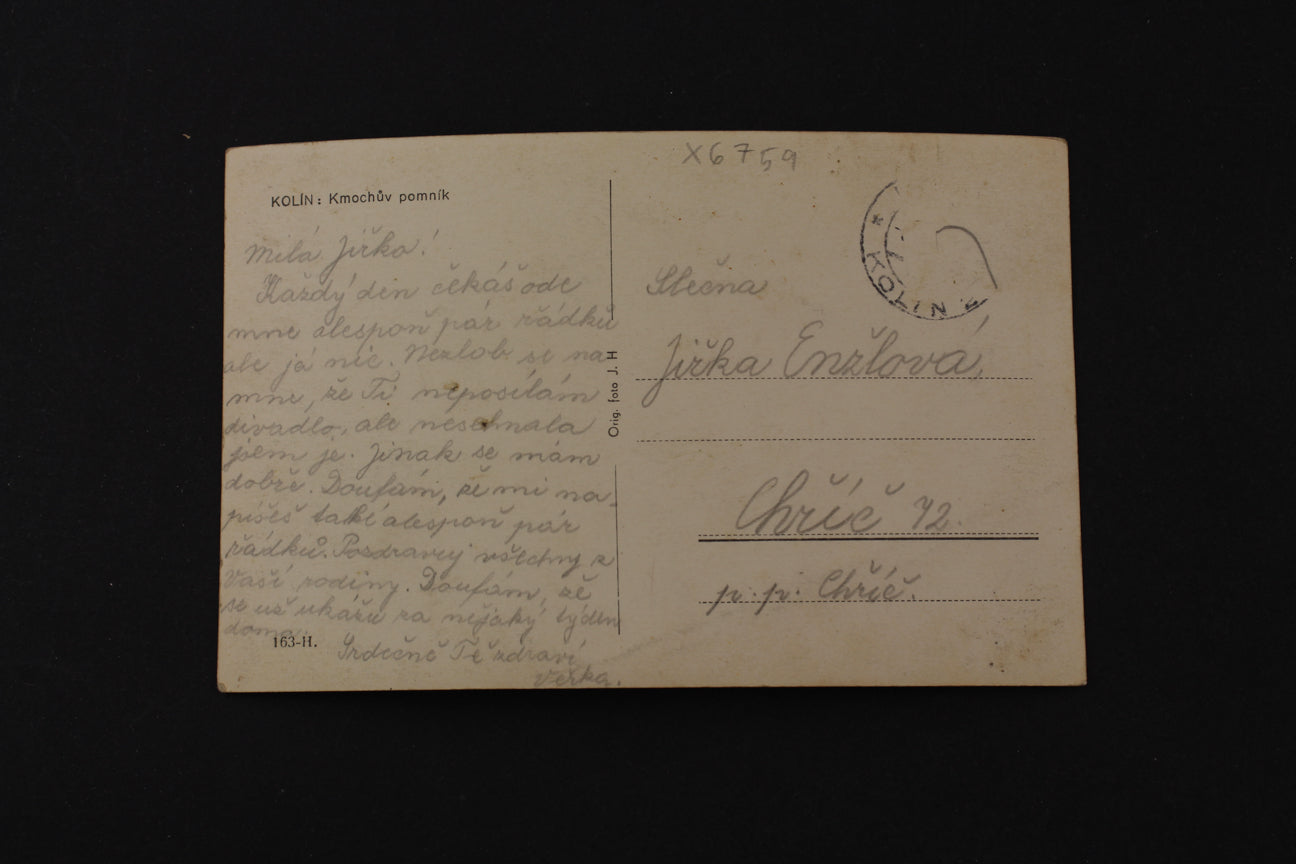 X6759
KOLÍN: Kmochův pomník
Milá Jiřko!
Každý den čekáš ode
mne alespoň pár řádků
ale já nic. Nezlob se na
mne, že Ti neposílám
divadlo, ale nesehnala
jsem je. Jinak se mám
dobře. Doufám, že mi na-
píšeš také alespoň pár
řádků. Pozdravuj všechny z
Vaší rodiny. Doufám, že
se už ukážu za nějaký týden
doma.
Srdečně Tě zdraví
Verka.
163-H.
Orig. foto J. H
* KOLÍN 2
Slečna
Jiřka Enžlová,
Chříč 72.
p. p. Chříč.